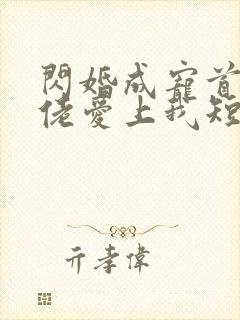 閃婚成寵首
佬愛上我短
亓孝偉